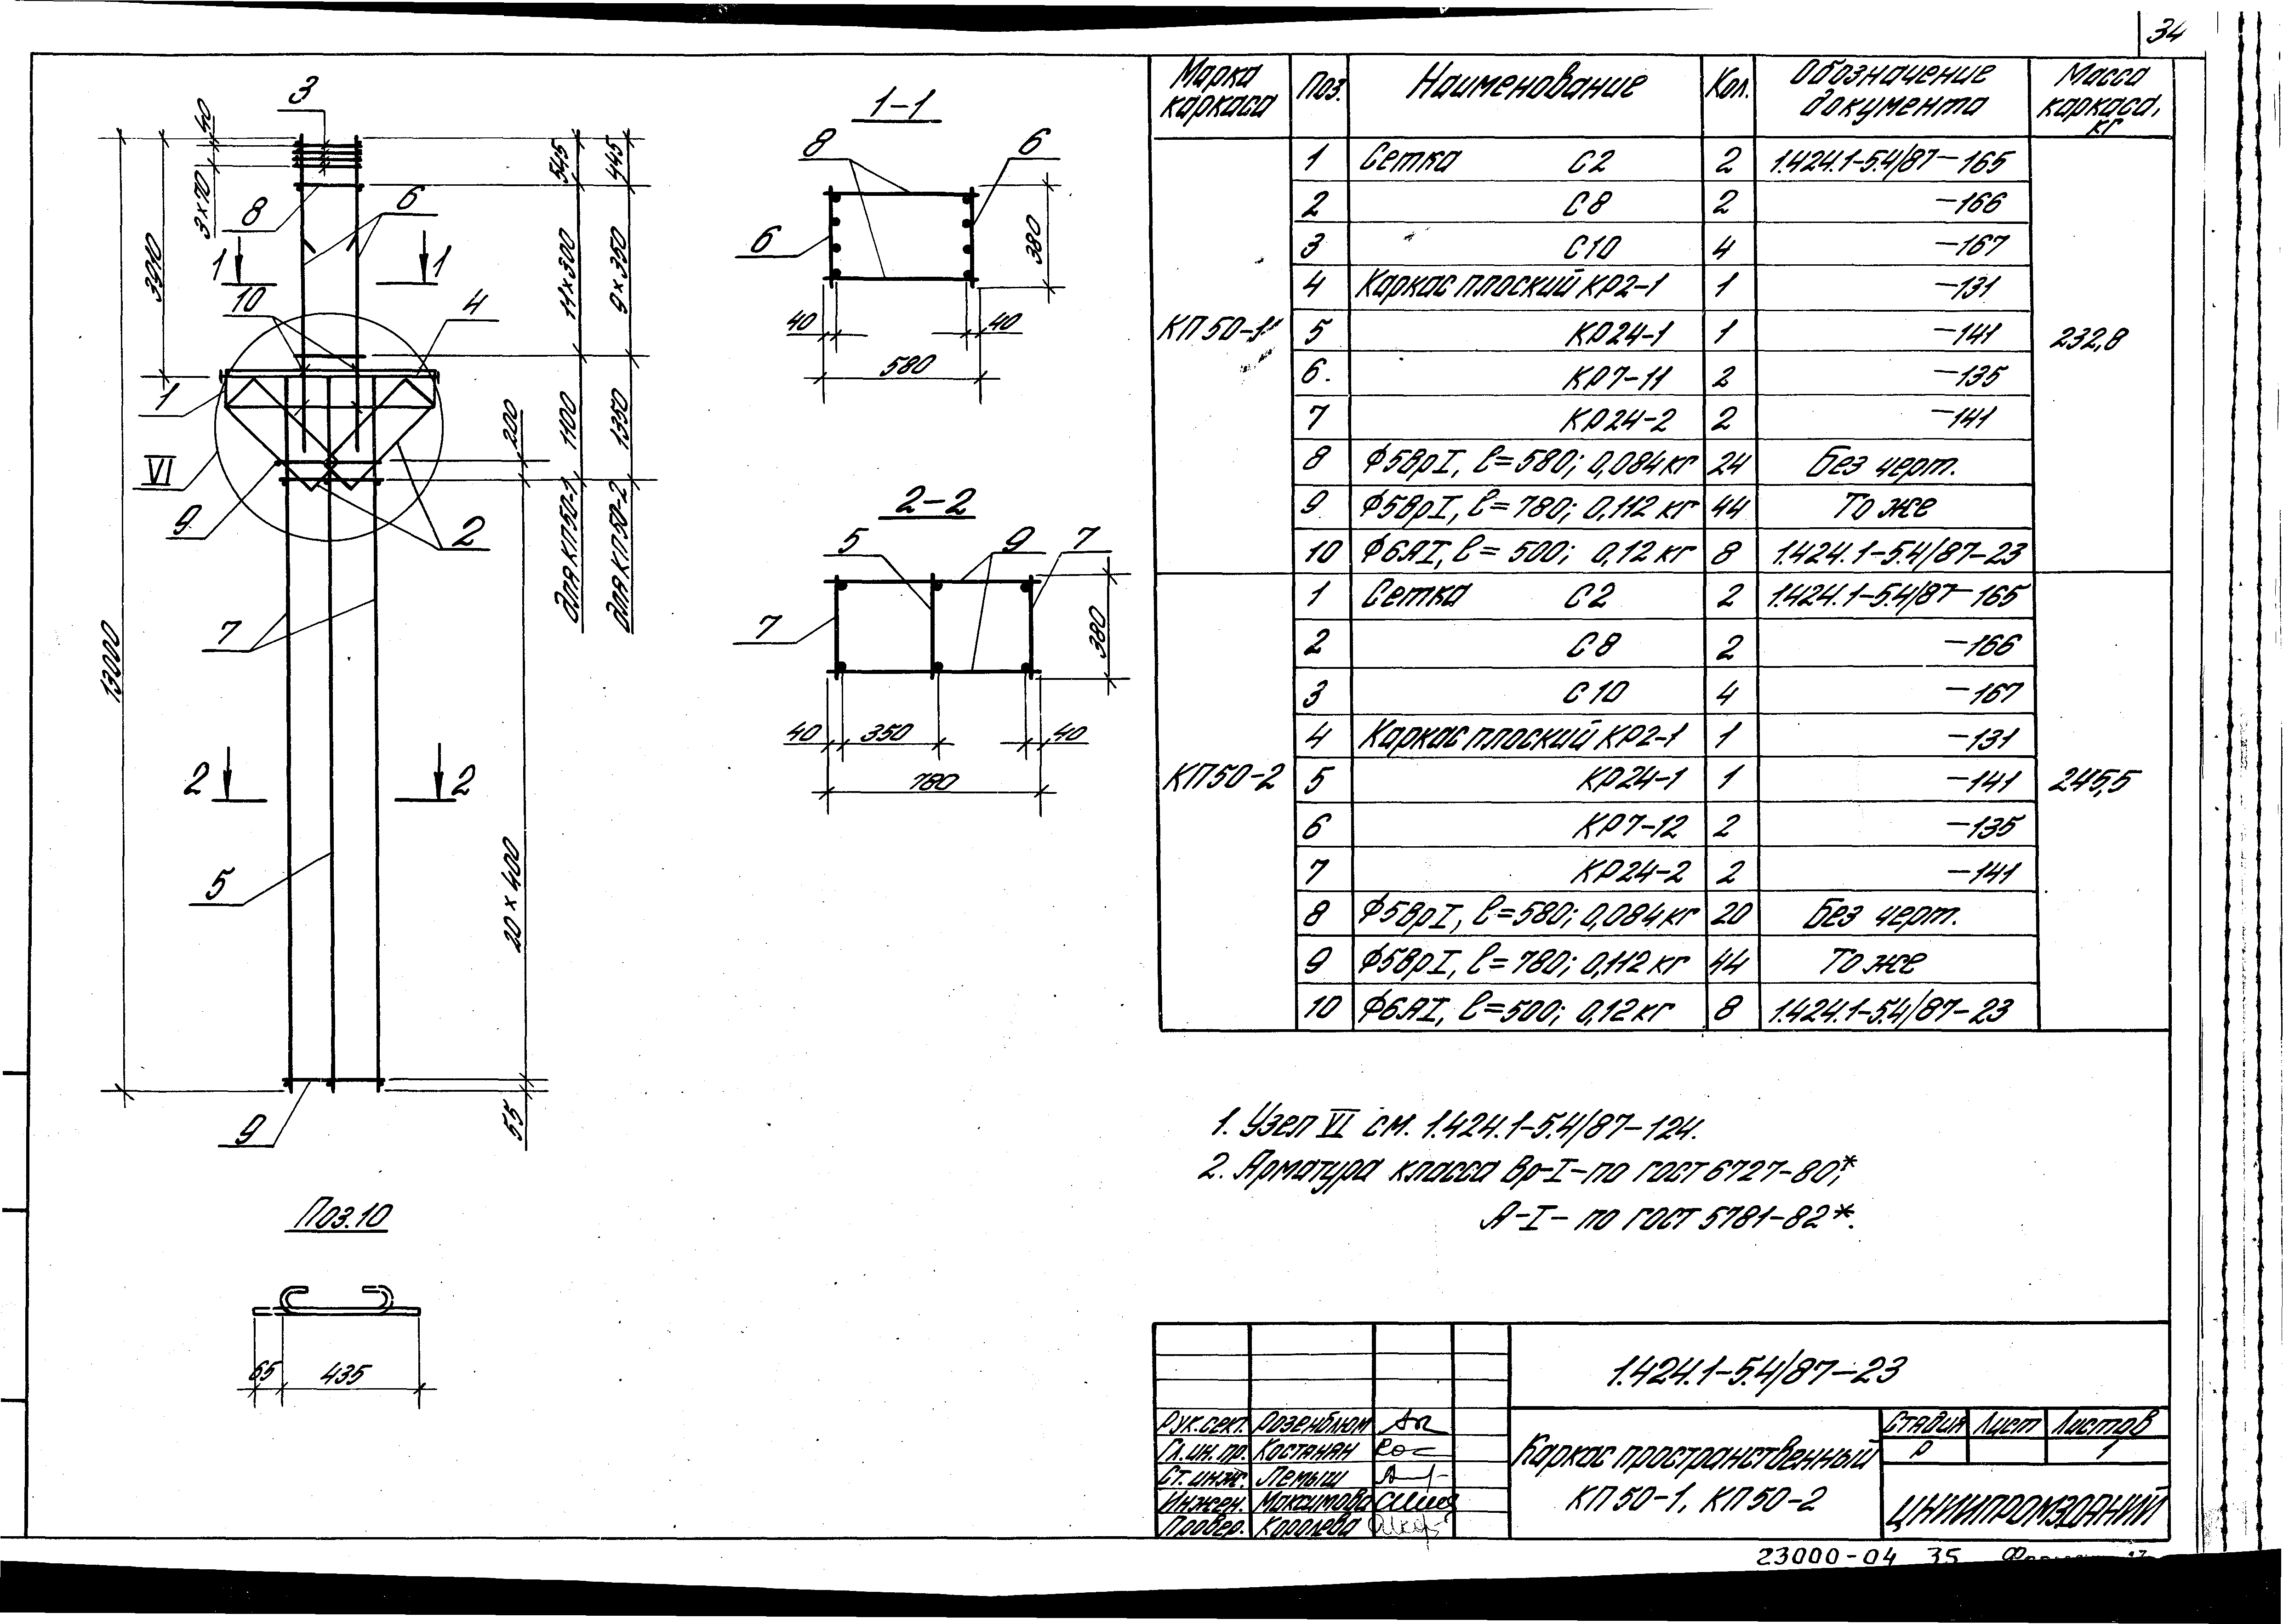 34
3
40
3×70
3990
8
6
1 1
10
4
1
VI
9
2
200
545
11×300
1100
для КП50-1
445
9×350
1350
для КП50-2
13000
7
2 2
5
20×400
55
9
Поз.10
65 435
1-1
8 6
6
380
40 40
580
2-2
5 9 7
7
380
40 350 40
780
Марка каркаса Поз. Наименование Кол. Обозначение документа Масса каркаса, кг
КП50-1 232,8
1 Сетка С2 2 1.424.1-5.4/87-165
2 С8 2 -166
3 С10 4 -167
4 Каркас плоский КР2-1 1 -131
5 КР24-1 1 -141
6. КР7-11 2 -135
7 КР24-2 2 -141
8 Ф5ВрI, ℓ=580; 0,084кг 24 Без черт.
9 Ф5ВрI, ℓ=780; 0,112кг 44 То же
10 Ф6АI, ℓ=500; 0,12кг 8 1.424.1-5.4/87-23
КП50-2 245,5
1 Сетка С2 2 1.424.1-5.4/87-165
2 С8 2 -166
3 С10 4 -167
4 Каркас плоский КР2-1 1 -131
5 КР24-1 1 -141
6 КР7-12 2 -135
7 КР24-2 2 -141
8 Ф5ВрI, ℓ=580; 0,084кг 20 Без черт.
9 Ф5ВрI, ℓ=780; 0,112кг 44 То же
10 Ф6АI, ℓ=500; 0,12кг 8 1.424.1-5.4/87-23
1. Узел VI см. 1.424.1-5.4/87-124.
2. Арматура класса Вр-I-по ГОСТ 6727-80*;
А-I- по ГОСТ 5781-82*.
1.424.1-5.4/87-23
Рук.сект. Розенблюм
Гл.ин.пр. Костанян
Ст.инж. Лемыш
Инжен. Максимова
Провер. Королева
Каркас пространственный
КП50-1, КП50-2
Стадия Лист Листов
Р 1
ЦНИИПРОМЗДАНИЙ
23000-04 35